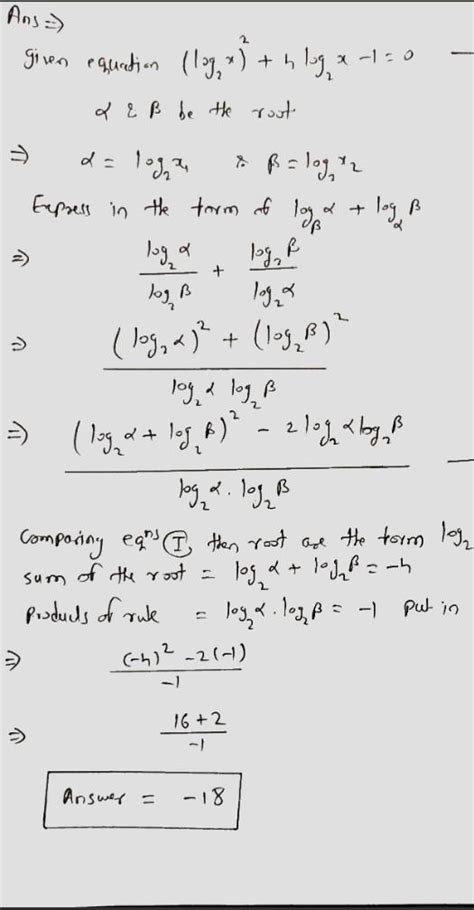 Ans ⇒
given equation (log₂x)² + 4 log₂x - 1 = 0 —
α & β be the root.
⇒ α = log₂x₁ & β = log₂x₂
Express in the term of log_β α + log_α β
⇒ log₂α / log₂β + log₂β / log₂α
⇒ ((log₂α)² + (log₂β)²) / (log₂α log₂β)
⇒ ((log₂α + log₂β)² - 2 log₂α log₂β) / (log₂α . log₂β) —
Comparing eqⁿˢ Ⓘ, then root are the term log₂
sum of the root = log₂α + log₂β = -4
Products of rule = log₂α . log₂β = -1 put in
⇒ ((-4)² - 2(-1)) / -1
⇒ (16 + 2) / -1
Answer = -18